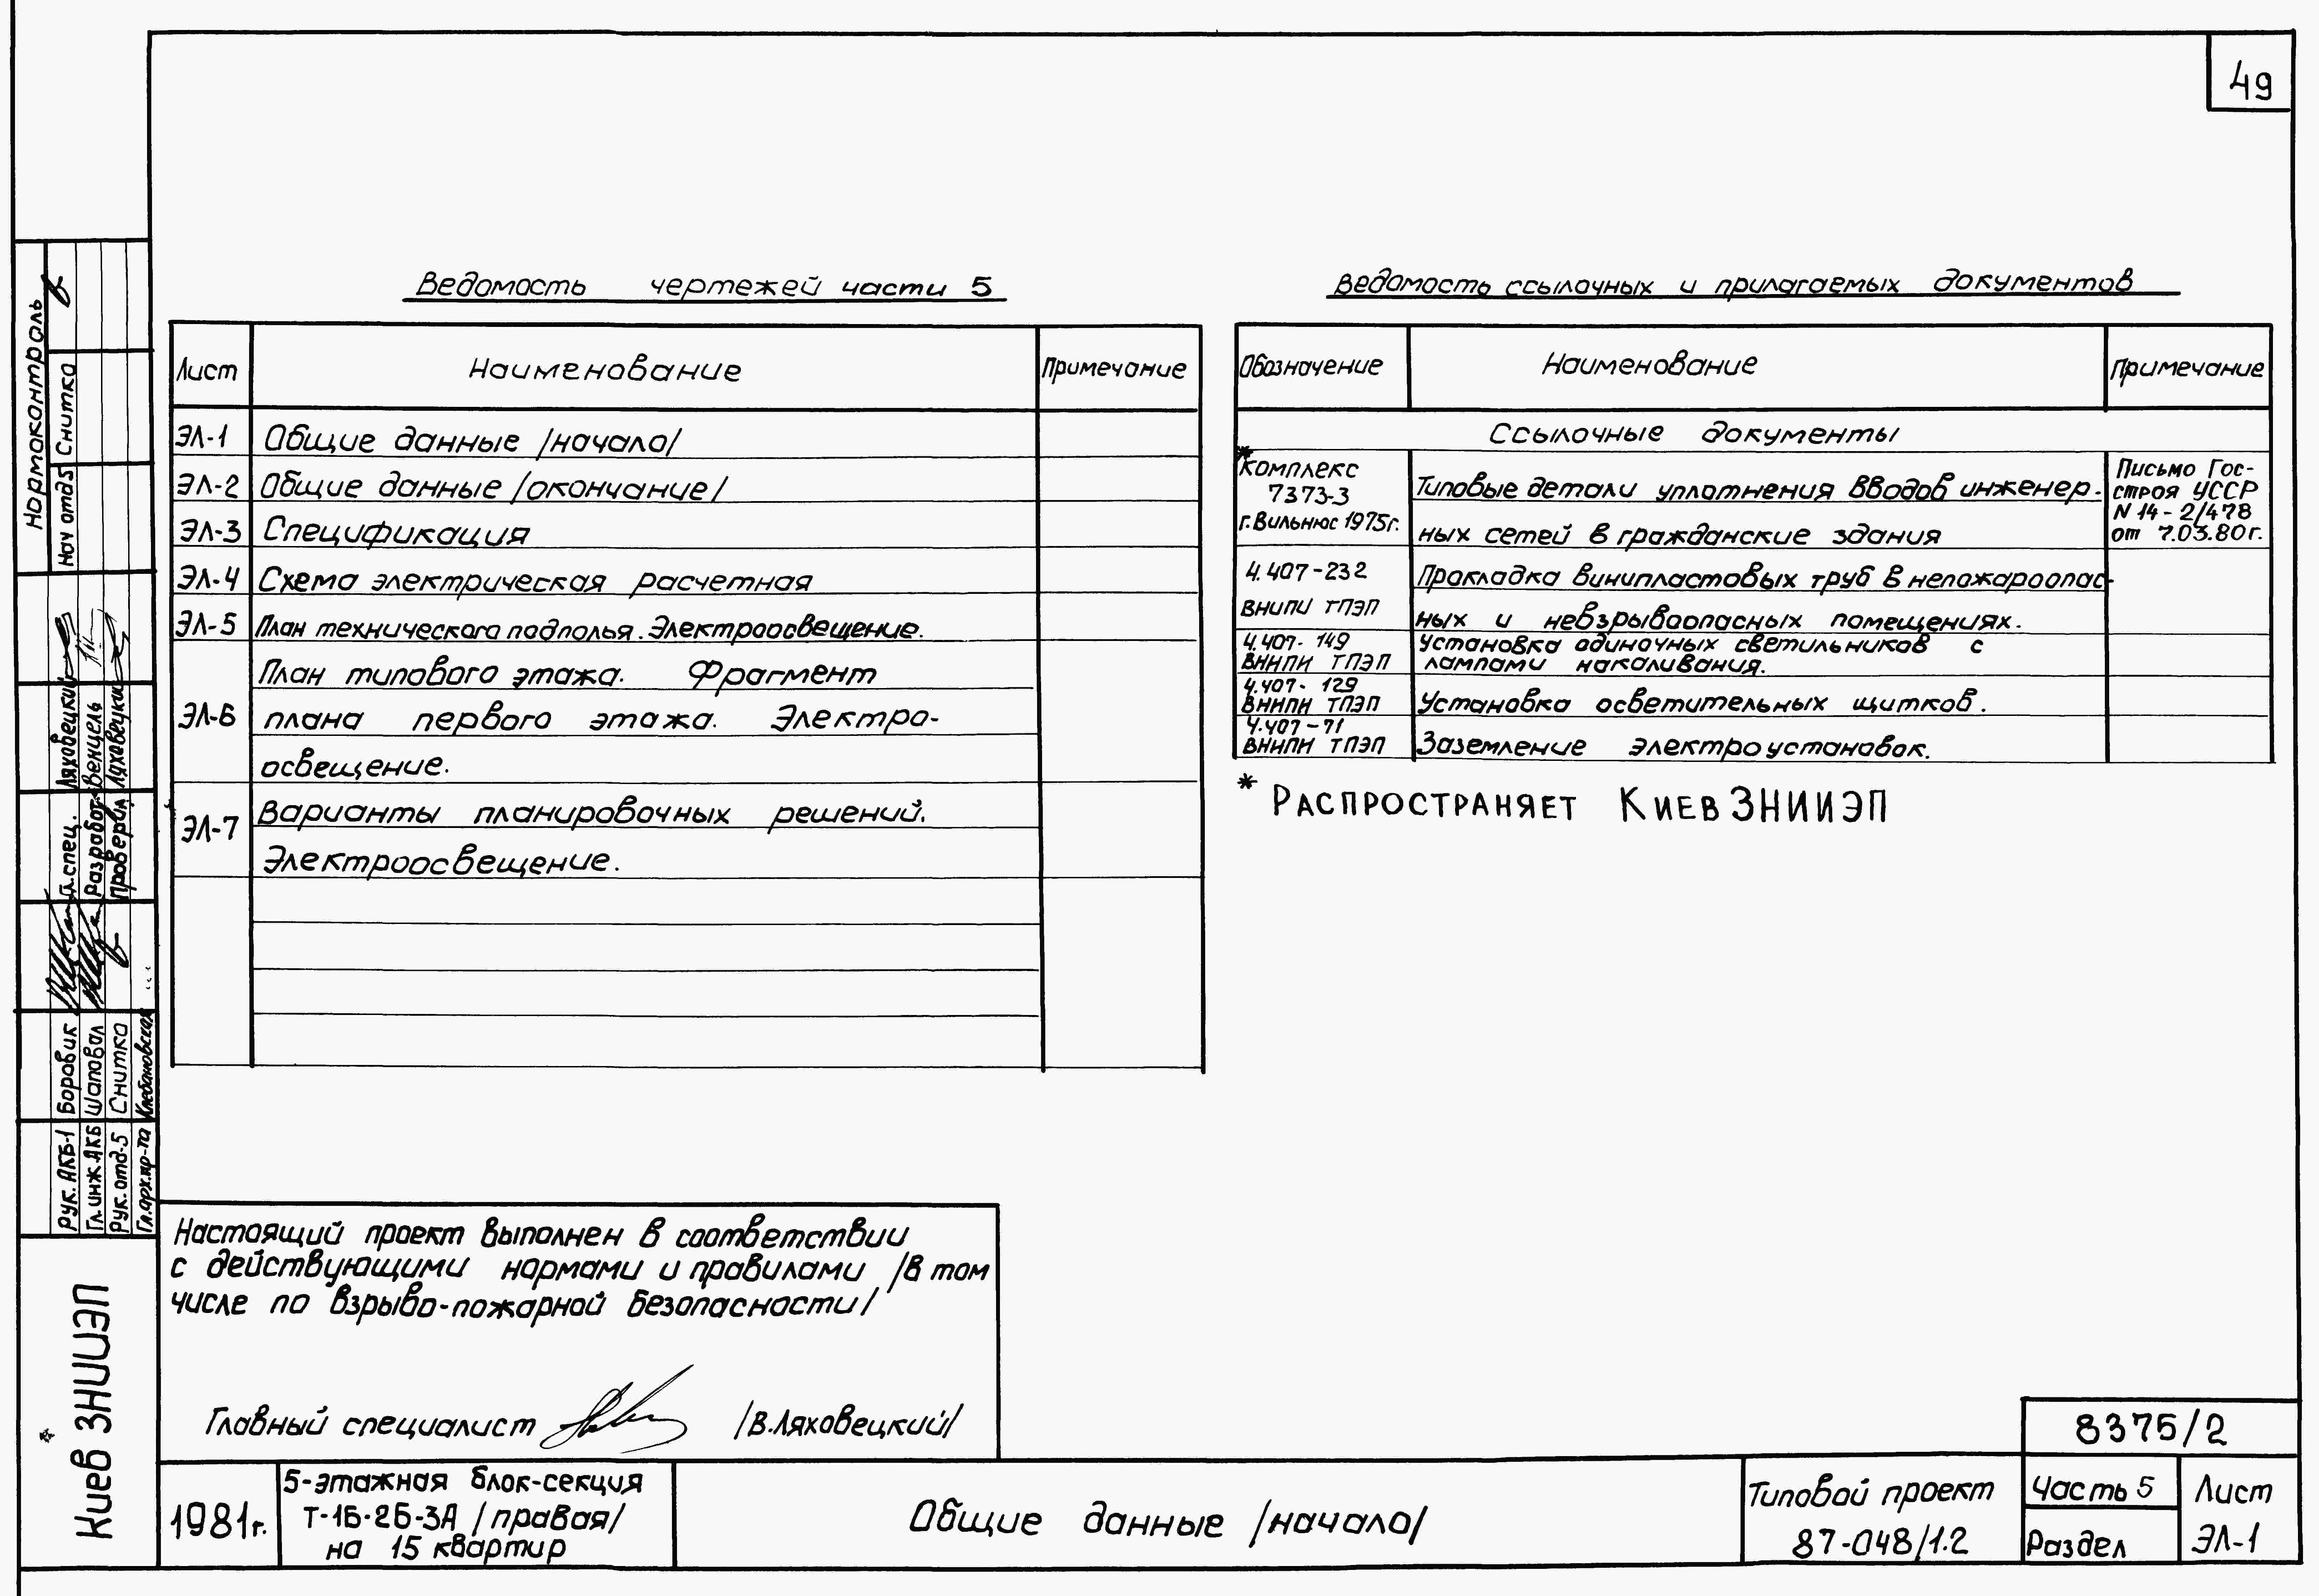 49
Ведомость чертежей части 5
Лист Наименование Примечание
ЭЛ-1 Общие данные /начало/
ЭЛ-2 Общие данные /окончание/
ЭЛ-3 Спецификация
ЭЛ-4 Схема электрическая расчетная
ЭЛ-5 План технического подполья. Электроосвещение.
План типового этажа. Фрагмент
ЭЛ-6 плана первого этажа. Электро-
освещение.
ЭЛ-7 Варианты планировочных решений.
Электроосвещение.
Ведомость ссылочных и прилагаемых документов
Обозначение Наименование Примечание
Ссылочные документы
* Комплекс
7373-3
г. Вильнюс 1975г.
Типовые детали уплотнения вводов инженер-
ных сетей в гражданские здания
Письмо Гос-
строя УССР
N 14-2/478
от 7.03.80г.
4.407-232
ВНИПИ ТПЭП
Прокладка винипластовых труб в непожароопас-
ных и невзрывоопасных помещениях.
4.407-149
ВНИПИ ТПЭП
Установка одиночных светильников с
лампами накаливания.
4.407-129
ВНИПИ ТПЭП
Установка осветительных щитков.
4.407-71
ВНИПИ ТПЭП
Заземление электроустановок.
* Распространяет Киев ЗНИИЭП
Нормоконтроль
Нач отд5 Снитко
Гл. спец. Ляховецкий
Разработ. Венцель
Проверил Ляховецкий
Рук. АКБ-1 Боровик
Гл. инж. АКБ Шаповал
Рук. отд-5 Снитко
Гл.арх.пр-та Клебановская
Киев ЗНИИЭП
Настоящий проект выполнен в соответствии
с действующими нормами и правилами /в том
числе по взрыво-пожарной безопасности/
Главный специалист /В.Ляховецкий/
1981г.
5-этажная блок-секция
Т-1Б-2Б-3А /правая/
на 15 квартир
Общие данные /начало/
Типовой проект
87-048/1.2
8375/2
Часть 5
Раздел
Лист
ЭЛ-1